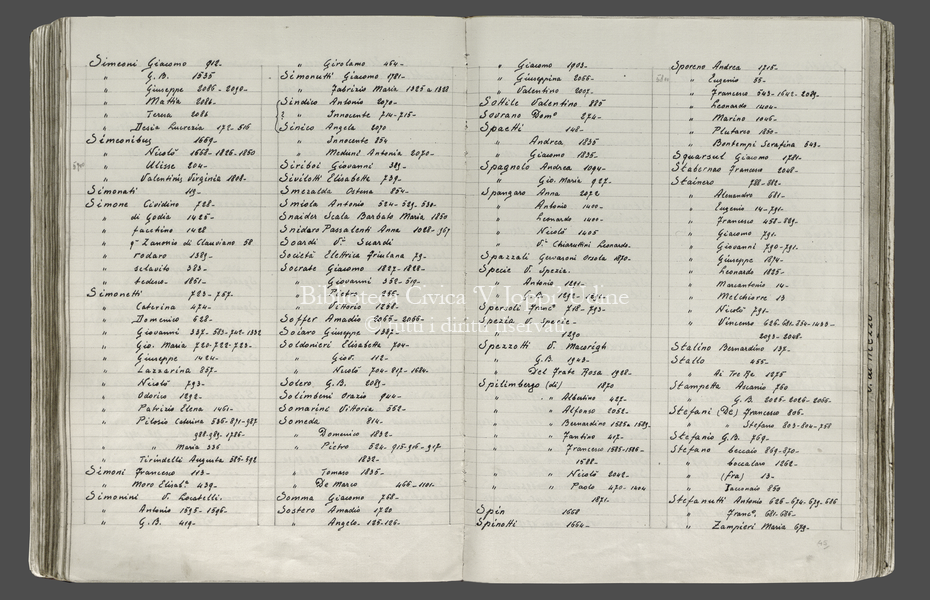 Simeoni Giacomo 912-
" G.B. 1535
" Giuseppe 2085-2090-
" Mattia 2086-
" Teresa 2086
" Desia Lucrezia 172-516
Simeonibus 1669-
" Nicolò 1668-1826-1850
" Ulisse 204-
" Valentinis Virginia 1808-
Simonati 119-
Simone Cividino 728-
" di Godia 1425-
" facchino 1428
" qm Zanonio di Clauviano 58
" rodaro 1389-
" sclavito 383-
" tedesco 1851-
Simonetti 723-757-
" Caterina 474-
" Domenico 628-
" Giovanni 337-513-741-1332
" Gio. Maria 720-722-723-
" Giuseppe 1424-
" Lazzarina 857-
" Nicolò 793-
" Odorico 1292-
" Patrizio Elena 1461-
" Pilosio Caterina 536-871-987
988-989-1786-
" " Maria 336
" Tirindelli Augusta 585-592
Simoni Francesco 113-
" Moro Elisabª 439-
Simonini V. Locatelli.
" Antonio 1595-1596-
" G.B. 419-
" Girolamo 454-
Simonutti Giacomo 1781-
" Fabrizio Maria 1325 a 1328
Sindico Antonio 2070-
" Innocente 714-715-
Sinico Angelo 2070
" Innocente 254
" Meduni Antonia 2070-
Siriboi Giovanni 389-
Sivilotti Elisabetta 739-
Smezalda Ostena 854-
Smiola Antonio 524-529-530-
Snaider Scala Barbato Maria 1850
Snidaro Passalenti Anna 1028-967
Soardi V. Suardi
Società Elettrica Friulana 79-
Socrate Giacomo 1827-1828-
" Giovanni 352-519-
" Pietro 266-
" Vittorio 1268-
Soffer Amadio 2065-2066-
Soiaro Giuseppe 1387-
Soldonieri Elisabetta 704-
" Giov. 112-
" Nicolò 704-817-1684-
Solero G.B. 2089-
Solimbeni Orazio 944-
Somarini Vittoria 552-
Someda 814-
" Domenico 1832-
" Pietro 524-915-916-917
1832-
" Tomaso 1835-
" De Marco 466-1101-
Somma Giacomo 768-
Sostero Amadio 1720
" Angelo 125-126-
" Giacomo 1903-
" Giuseppina 2066-
" Valentino 2007-
Sottile Valentino 885
Sovrano Domº 274-
Spaetti 148-
" Andrea 1835
" Giacomo 1835-
Spagnolo Andrea 1094-
" Gio. Maria 927-
Spangaro Anna 2072
" Antonio 1400-
" Leonardo 1400-
" Nicolò 1405
" V. Chiaruttini Leonardo.
Spazzali Gervasoni Orsola 1870-
Specie V. Spezia.
" Antonio 1291-
" G.B. 1292-1294-
Spersoli Francº 718-793-
Spezia V. Specie-
" 1290
Spezzotti V. Macorigh
" G.B. 1943-
" Del Frate Rosa 1928-
Spilimbergo (di) 1870
" " Albertino 427-
" " Alfonso 2052-
" " Bernardino 1585 a 1589-
" " Fantino 417-
" " Francesco 1585-1586-
1588-
" " Nicolò 2042-
" " Paolo 470-1404
1871-
Spin 1668
Spinotti 1664-
Sporeno Andrea 1715-
" Eugenio 55-
" Francesco 543-1642-2089-
" Leonardo 1404-
" Marino 1046-
" Plutarco 1860-
" Bontempi Serafina 543-
Squarsul Giacomo 1781-
Stabernao Francesco 2048-
Stainero 788-882-
" Alessandro 681-
" Eugenio 14-791-
" Francesco 458-889-
" Giacomo 791-
" Giovanni 790-791-
" Giuseppe 1874-
" Leonardo 1825-
" Marcantonio 14-
" Melchiorre 13
" Nicolò 791-
" Vincenzo 626-681-854-1433-
2093-2048-
Stalino Bernardino 137-
Stallo 455-
" Ai Tre Re 1275
Stampetta Ascanio 760
" G.B. 2025-2026-2066-
Stefani (De) Francesco 806-
" " Stefano 803-804-758
Stefanio G.B. 769-
Stefano beccaio 869-870-
" boccalaro 1262-
" (fra) 13-
" Tacconaio 850
Stefanutti Antonio 626-674-679-686
" Francº. 681-686-
" Zampieri Maria 679-
Biblioteca Civica "V. Joppi" Udine
© tutti i diritti riservati